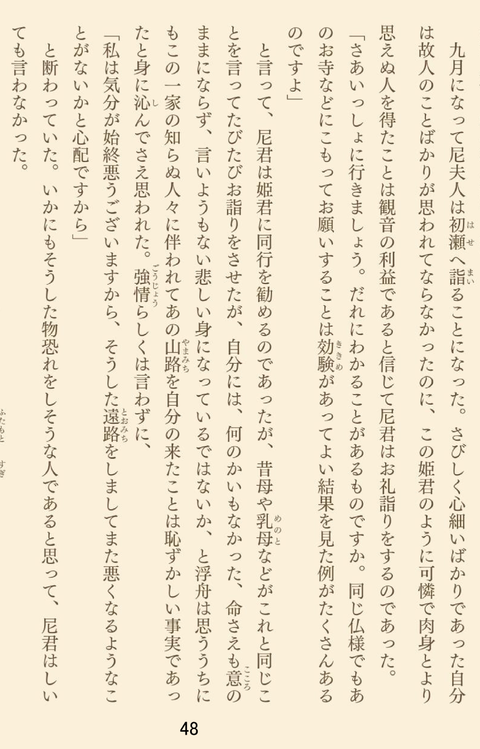 九月になって尼夫人は初瀬へ詣ることになった。さびしく心細いばかりであった自分
は故人のことばかりが思われてならなかったのに、この姫君のように可憐で肉身とより
思えぬ人を得たことは観音の利益であると信じて尼君はお礼詣りをするのであった。
「さあいっしょに行きましょう。だれにわかることがあるものですか。同じ仏様でもあ
のお寺などにこもってお願いすることは効験があってよい結果を見た例がたくさんある
のですよ」
と言って、尼君は姫君に同行を勧めるのであったが、昔母や乳母などがこれと同じこ
とを言ってたびたびお詣りをさせたが、自分には、何のかいもなかった、命さえも意の
ままにならず、言いようもない悲しい身になっているではないか、と浮舟は思ううちに
もこの一家の知らぬ人々に伴われてあの山路を自分の来たことは恥ずかしい事実であっ
たと身に沁んでさえ思われた。強情らしくは言わずに、
「私は気分が始終悪うございますから、そうした遠路をしましてまた悪くなるようなこ
とがないかと心配ですから」
と断わっていた。いかにもそうした物恐れをしそうな人であると思って、尼君はしい
ても言わなかった。
はせ
まい
ききめ
めのと
こころ
やまみち
し
ごうじょう
とおみち
ふたもと
すぎ
48